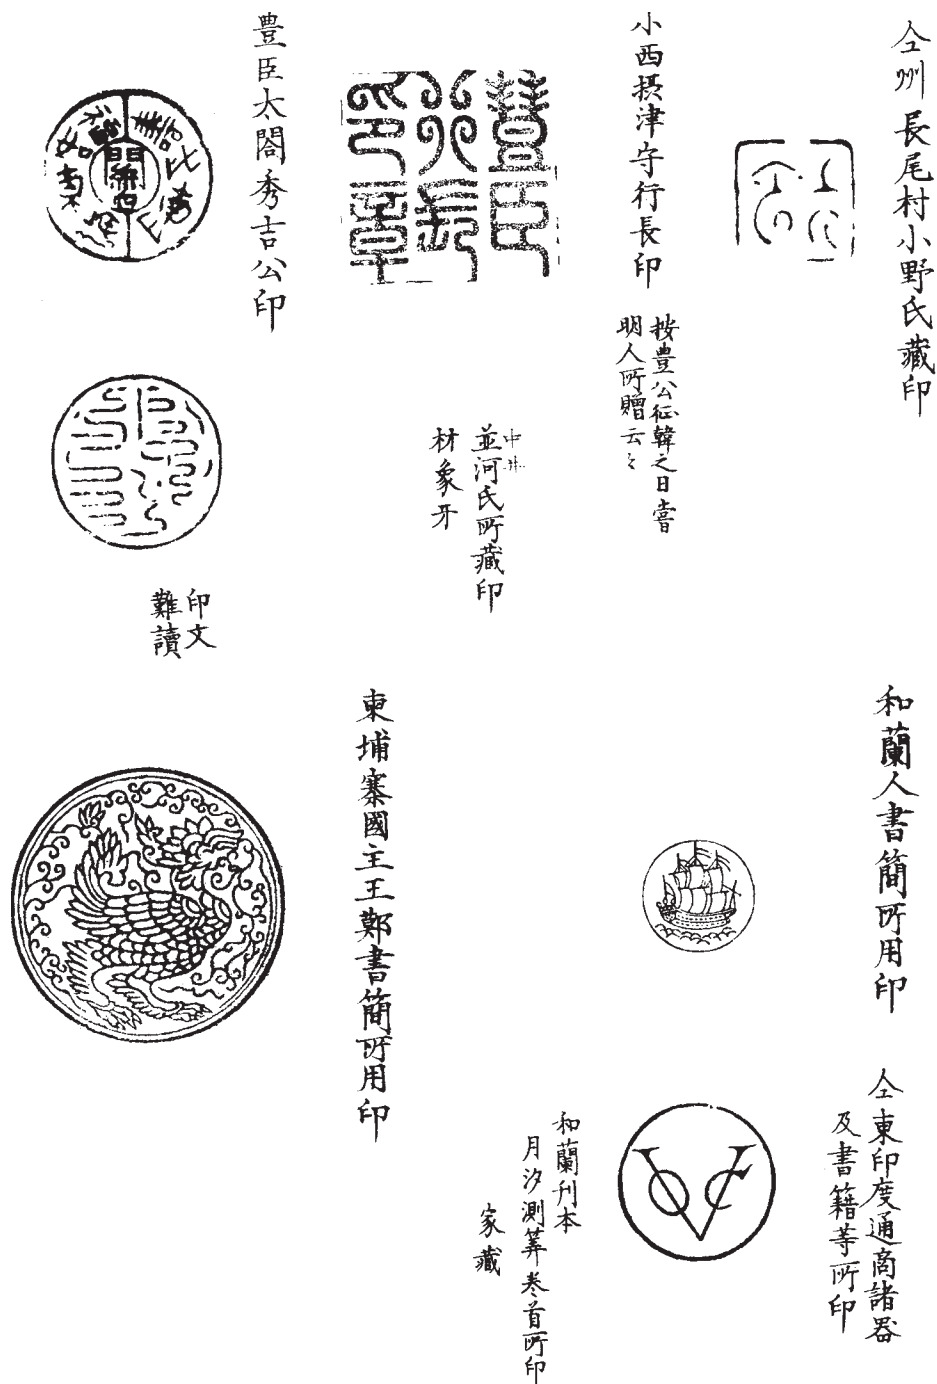 仝州長尾村小野氏藏印
小西摂津守行長印
按豊公征韓之日嘗
明人所贈云々
豊臣行長印章
中井
並河氏所藏印
材象牙
豊臣太閤秀吉公印
印文
難讀
和蘭人書簡所用印
仝東印度通商諸器
及書籍等所印
VOC
和蘭刊本
月汐測筭巻首所印
家藏
東埔寨國主王鄭書簡所用印